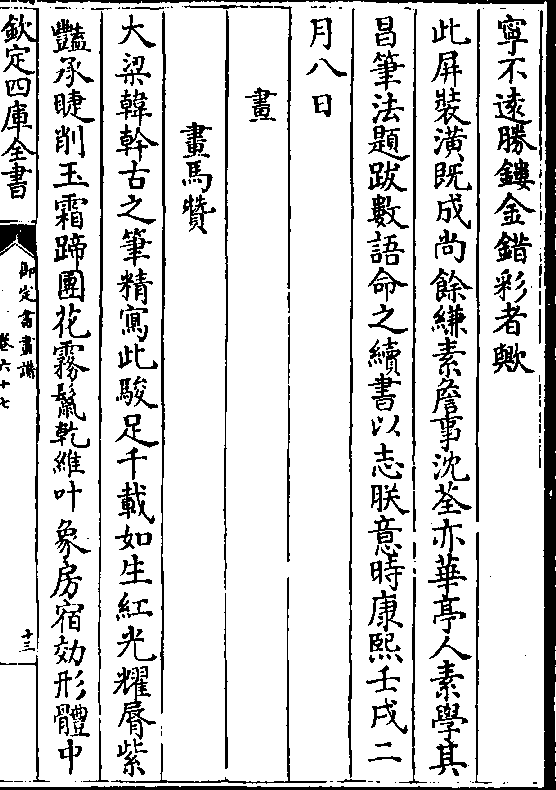 寧不逺勝鏤金錯彩者歟
此屏裝潢既成尚餘縑素詹事沈荃亦華亭人素學其
昌筆法題跋數語命之續書以志朕意時康熙壬戌二
月八日
畫
畫馬贊
大梁韓幹古之筆精寫此駿足千載如生紅光耀脣紫
豔承睫削玉霜蹄團花霧鬛乾維叶象房宿効形體中
欽定四庫全書
御定書畫譜
卷六十七
十三